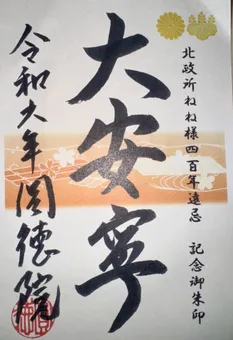 北政所ねね様四百年遠忌 記念御朱印
大安寧
令和六年圓德院